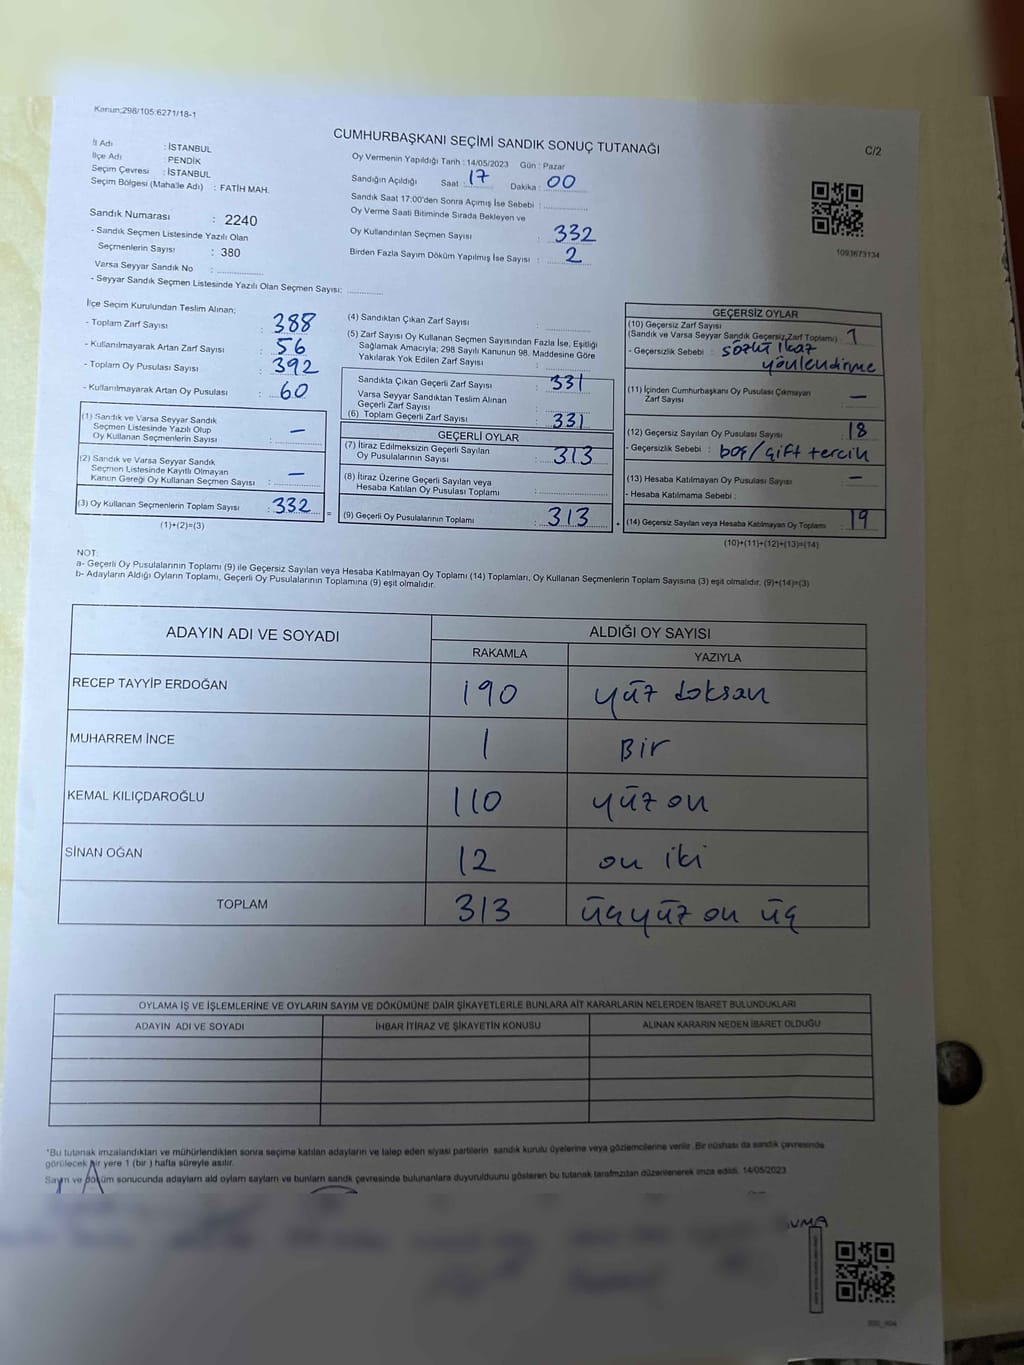 Kanun:298/105:6271/18-1
CUMHURBAŞKANI SEÇİMİ SANDIK SONUÇ TUTANAĞI
C/2
İl Adı : İSTANBUL
İlçe Adı : PENDİK
Seçim Çevresi : İSTANBUL
Seçim Bölgesi (Mahalle Adı) : FATİH MAH.
Sandık Numarası : 2240
- Sandık Seçmen Listesinde Yazılı Olan
Seçmenlerin Sayısı : 380
Varsa Seyyar Sandık No : ..............
- Seyyar Sandık Seçmen Listesinde Yazılı Olan Seçmen Sayısı: ..........
Oy Vermenin Yapıldığı Tarih : 14/05/2023 Gün : Pazar
Sandığın Açıldığı Saat : 17 Dakika : 00
Sandık Saat 17:00'den Sonra Açımış İse Sebebi : ..............
Oy Verme Saati Bitiminde Sırada Bekleyen ve
Oy Kullandırılan Seçmen Sayısı : 332
Birden Fazla Sayım Döküm Yapılmış İse Sayısı : 2
1093673134
İlçe Seçim Kurulundan Teslim Alınan;
- Toplam Zarf Sayısı : 388
- Kullanılmayarak Artan Zarf Sayısı : 56
- Toplam Oy Pusulası Sayısı : 392
- Kullanılmayarak Artan Oy Pusulası : 60
(1) Sandık ve Varsa Seyyar Sandık
Seçmen Listesinde Yazılı Olup
Oy Kullanan Seçmenlerin Sayısı : —
(2) Sandık ve Varsa Seyyar Sandık
Seçmen Listesinde Kayıtlı Olmayan
Kanun Gereği Oy Kullanan Seçmen Sayısı : —
(3) Oy Kullanan Seçmenlerin Toplam Sayısı : 332 =
(1)+(2)=(3)
(4) Sandıktan Çıkan Zarf Sayısı : ..............
(5) Zarf Sayısı Oy Kullanan Seçmen Sayısından Fazla İse, Eşitliği
Sağlamak Amacıyla; 298 Sayılı Kanunun 98. Maddesine Göre
Yakılarak Yok Edilen Zarf Sayısı : ..............
Sandıkta Çıkan Geçerli Zarf Sayısı : 331
Varsa Seyyar Sandıktan Teslim Alınan
Geçerli Zarf Sayısı : ..............
(6) Toplam Geçerli Zarf Sayısı : 331
GEÇERLİ OYLAR
(7) İtiraz Edilmeksizin Geçerli Sayılan
Oy Pusulalarının Sayısı : 313
(8) İtiraz Üzerine Geçerli Sayılan veya
Hesaba Katılan Oy Pusulası Toplamı : ..............
(9) Geçerli Oy Pusulalarının Toplamı : 313 +
GEÇERSİZ OYLAR
(10) Geçersiz Zarf Sayısı
(Sandık ve Varsa Seyyar Sandık Geçersiz Zarf Toplamı) : 1
- Geçersizlik Sebebi : sözlü ikaz
yönlendirme
(11) İçinden Cumhurbaşkanı Oy Pusulası Çıkmayan
Zarf Sayısı : —
(12) Geçersiz Sayılan Oy Pusulası Sayısı : 18
- Geçersizlik Sebebi : boş/çift tercih
(13) Hesaba Katılmayan Oy Pusulası Sayısı : —
- Hesaba Katılmama Sebebi :
(14) Geçersiz Sayılan veya Hesaba Katılmayan Oy Toplamı : 19
(10)+(11)+(12)+(13)=(14)
NOT:
a- Geçerli Oy Pusulalarının Toplamı (9) ile Geçersiz Sayılan veya Hesaba Katılmayan Oy Toplamı (14) Toplamları, Oy Kullanan Seçmenlerin Toplam Sayısına (3) eşit olmalıdır. (9)+(14)=(3)
b- Adayların Aldığı Oyların Toplamı, Geçerli Oy Pusulalarının Toplamına (9) eşit olmalıdır.
ADAYIN ADI VE SOYADI
ALDIĞI OY SAYISI
RAKAMLA YAZIYLA
RECEP TAYYİP ERDOĞAN 190 yüz doksan
MUHARREM İNCE 1 Bir
KEMAL KILIÇDAROĞLU 110 yüz on
SİNAN OĞAN 12 on iki
TOPLAM 313 üçyüz on üç
OYLAMA İŞ VE İŞLEMLERİNE VE OYLARIN SAYIM VE DÖKÜMÜNE DAİR ŞİKAYETLERLE BUNLARA AİT KARARLARIN NELERDEN İBARET BULUNDUKLARI
ADAYIN ADI VE SOYADI İHBAR İTİRAZ VE ŞİKAYETİN KONUSU ALINAN KARARIN NEDEN İBARET OLDUĞU
*Bu tutanak imzalandıktan ve mühürlendikten sonra seçime katılan adayların ve talep eden siyasi partilerin sandık kurulu üyelerine veya gözlemcilerine verilir. Bir nüshası da sandık çevresinde
görülecek bir yere 1 (bir ) hafta süreyle asılır.
Sayım ve döküm sonucunda adayların ald oyların sayların ve bunların sandık çevresinde bulunanlara duyurulduunu gösteren bu tutanak tarafımızdan düzenlenerek imza edildi. 14/05/2023
UMA